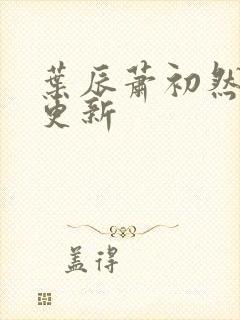 葉辰蕭初然
更新
蓋得